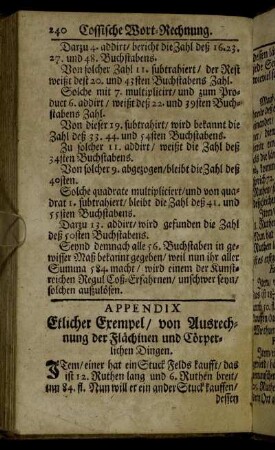 240 Cossische Wort-Rechnung.
Darzu 4. addirt / bericht die Zahl deß 16. 23.
27. und 48. Buchstabens.
Von solcher Zahl 11. subtrahirt / der Rest
weißt deß 20. und 43sten Buchstabens Zahl.
Solche mit 7. multiplicirt / und zum Pro-
duct 6. addirt / weißt deß 22. und 39sten Buch-
stabens Zahl.
Von dieser 19. subtrahirt / wird bekannt die
Zahl deß 33. 44. und 54sten Buchstabens.
Zu solcher 11. addirt / weißt die Zahl deß
34sten Buchstabens.
Von solcher 9. abgezogen / bleibt die Zahl deß
40sten.
Solche quadrate multipliciert / und von qua-
drat 1. subtrahirt / bleibt die Zahl deß 41. und
55sten Buchstabens.
Darzu 13. addirt / wird gefunden die Zahl
deß 50sten Buchstabens.
Seynd demnach alle 56. Buchstaben in ge-
wisser Maß bekannt gegeben / weil nun ihr aller
Summa 584. macht / wird einem der Kunst-
reichen Regul Coß-Erfahrnen / unschwer seyn /
solchen aufzulösen.
APPENDIX
Etlicher Exempel / von Ausrech-
nung der Flächinen und Cörper-
lichen Dingen.
ITem / einer hat ein Stuck Felds kaufft / das
ist 12. Ruthen lang und 6. Ruthen breit /
um 84. fl. Nun will er ein ander Stuck kauffen /
dessen